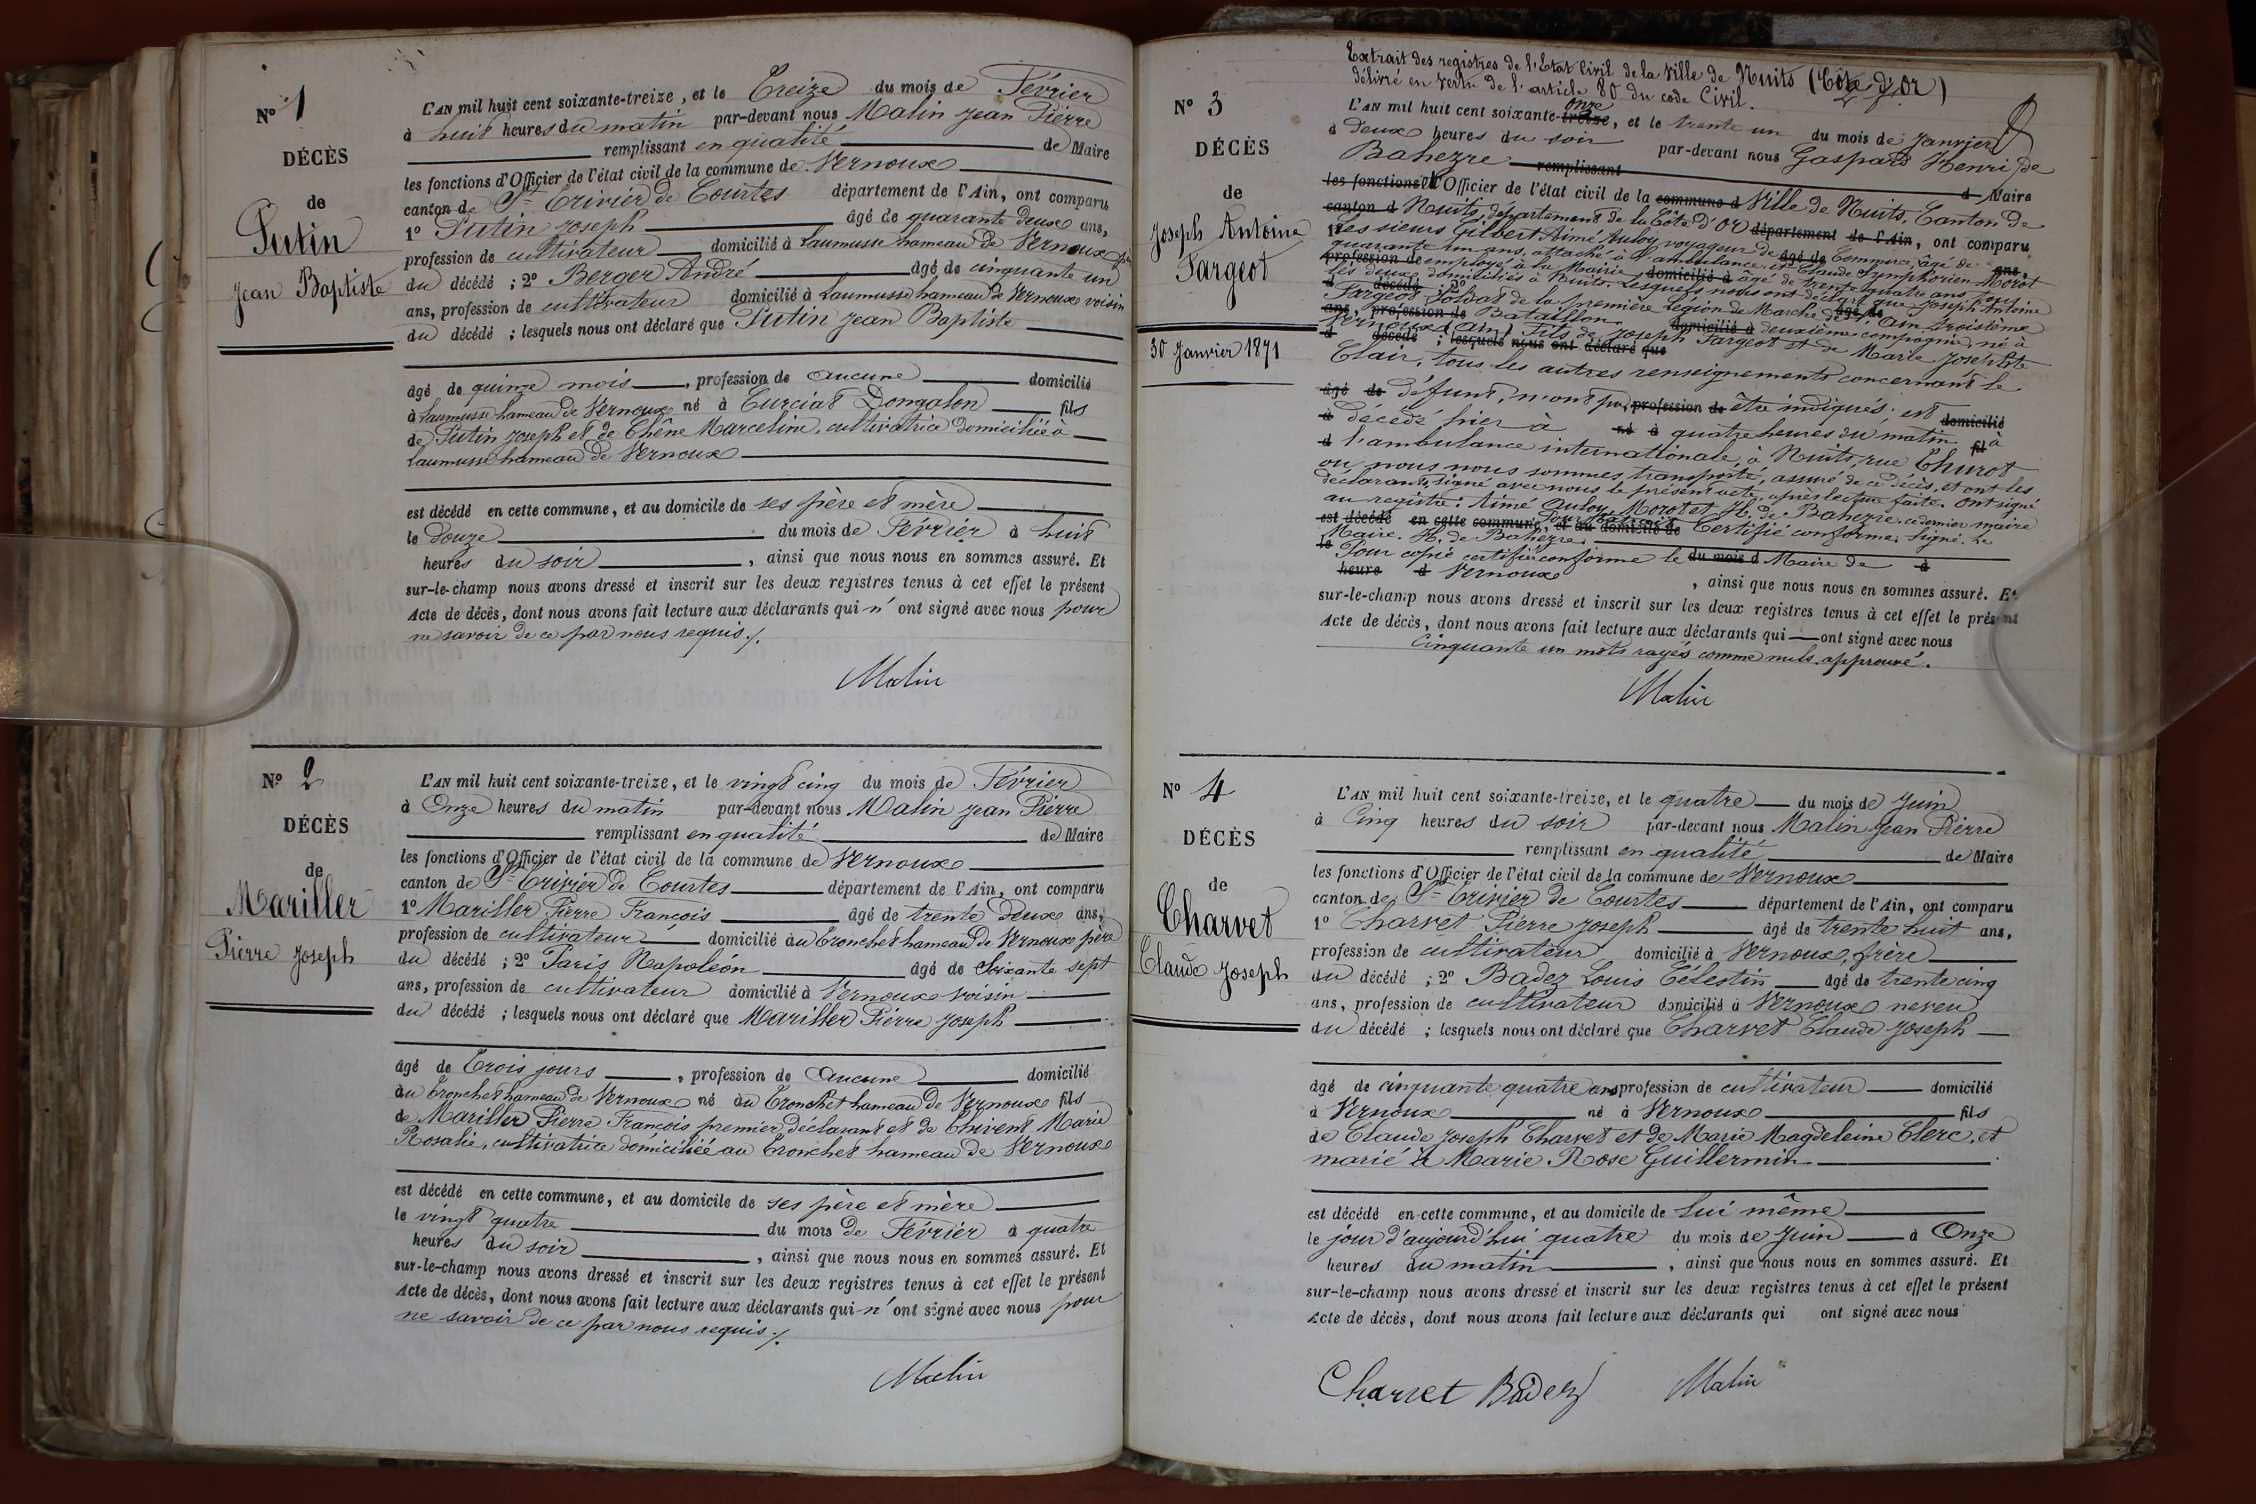 N° 1
DÉCÈS
de
Putin
Jean Baptiste
L'AN mil huit cent soixante-treize, et le Treize du mois de Février
à huit heures du matin par-devant nous Malin Jean Pierre
remplissant en qualité de Maire
les fonctions d'Officier de l'état civil de la commune de Vernoux
canton de St Trivier de Courtes département de l'Ain, ont comparu
1° Putin Joseph âgé de quarante deux ans,
profession de cultivateur domicilié à Laumusse hameau de Vernoux père
du décédé ; 2° Berger André âgé de cinquante un
ans, profession de cultivateur domicilié à Laumusse hameau de Vernoux voisin
du décédé ; lesquels nous ont déclaré que Putin Jean Baptiste
âgé de quinze mois, profession de Aucune domicilié
à Laumusse hameau de Vernoux né à Curciat Dongalon fils
de Putin Joseph et de Chêne Marceline, cultivatrice domiciliée à
Laumusse hameau de Vernoux
est décédé en cette commune, et au domicile de ses père et mère
le douze du mois de Février à huit
heures du soir, ainsi que nous nous en sommes assuré. Et
sur-le-champ nous avons dressé et inscrit sur les deux registres tenus à cet effet le présent
Acte de décès, dont nous avons fait lecture aux déclarants qui n'ont signé avec nous pour
ne savoir de ce par nous requis./.
Malin
N° 2
DÉCÈS
de
Mariller
Pierre Joseph
L'AN mil huit cent soixante-treize, et le vingt cinq du mois de Février
à Onze heures du matin par-devant nous Malin Jean Pierre
remplissant en qualité de Maire
les fonctions d'Officier de l'état civil de la commune de Vernoux
canton de St Trivier de Courtes département de l'Ain, ont comparu
1° Mariller Pierre François âgé de trente deux ans,
profession de cultivateur domicilié au Tronchet hameau de Vernoux père
du décédé ; 2° Paris Napoléon âgé de Soixante sept
ans, profession de cultivateur domicilié à Vernoux voisin
du décédé ; lesquels nous ont déclaré que Mariller Pierre Joseph
âgé de Trois jours, profession de Aucune domicilié
au Tronchet hameau de Vernoux né au Tronchet hameau de Vernoux fils
de Mariller Pierre François premier déclarant et de Thivent Marie
Rosalie, cultivatrice domiciliée au Tronchet hameau de Vernoux
est décédé en cette commune, et au domicile de ses père et mère
le vingt quatre du mois de Février à quatre
heures du soir, ainsi que nous nous en sommes assuré. Et
sur-le-champ nous avons dressé et inscrit sur les deux registres tenus à cet effet le présent
Acte de décès, dont nous avons fait lecture aux déclarants qui n'ont signé avec nous pour
ne savoir de ce par nous requis./.
Malin
Extrait des registres de l'Etat Civil de la Ville de Nuits (Côte d'Or)
délivré en vertu de l'article 80 du code Civil.
N° 3
DÉCÈS
de
Joseph Antoine
Fargeot
30 Janvier 1871
L'AN mil huit cent soixante-treize onze, et le trente un du mois de Janvier
à Deux heures du soir par-devant nous Gaspard Henri de
Bahezre remplissant
les fonctions d'Officier de l'état civil de la commune d Ville de Nuits, Canton de d Maire
canton d Nuits, département de la Côte d'Or département de l'Ain, ont comparu
1° Les sieurs Gilbert Aimé Auloy voyageur de Commerce, âgé de âgé de ans,
quarante un ans, attaché à l'ambulance, et Claude Symphorien Morot
profession de employé à la Mairie, domicilié à âgé de trente quatre ans,
les deux domiciliés à Nuits, lesquels nous ont déclaré que Joseph Antoine
d décédé ; 2° Fargeot Soldat de la première Légion de Marche de l'Ain troisième âgé de
ans, profession de Bataillon domicilié à deuxième compagnie, né à
Vernoux (Ain) Fils de Joseph Fargeot et de Marie Josephte
d décédé ; lesquels nous ont déclaré que
Clair, tous les autres renseignements concernant le
âgé de défunt, n'ont pu profession de être indiqués, est domicilié
à décédé hier à né à quatre heures du matin fil à
d l'ambulance internationale, à Nuits, rue Thurot
où nous nous sommes transporté, assuré de ce décès, et ont les
déclarants, signé avec nous le présent acte, après lecture faite. Ont signé
au registre : Aimé Auloy, Morot et H. de Bahezre, ce dernier maire
est décédé en cette commune, et au domicile de Certifié conforme, Signé. Le
Maire. H. de Bahezre.
le Pour copie certifiée conforme le du mois d Maire de à
heure d Vernoux, ainsi que nous nous en sommes assuré. Et
sur-le-champ nous avons dressé et inscrit sur les deux registres tenus à cet effet le présent
Acte de décès, dont nous avons fait lecture aux déclarants qui ont signé avec nous
Cinquante un mots rayés comme nuls approuvé.
Malin
N° 4
DÉCÈS
de
Charvet
Claude Joseph
L'AN mil huit cent soixante-treize, et le quatre du mois de Juin
à Cinq heures du soir par-devant nous Malin Jean Pierre
remplissant en qualité de Maire
les fonctions d'Officier de l'état civil de la commune de Vernoux
canton de St Trivier de Courtes département de l'Ain, ont comparu
1° Charvet Pierre Joseph âgé de trente huit ans,
profession de cultivateur domicilié à Vernoux, frère
du décédé ; 2° Badez Louis Célestin âgé de trente cinq
ans, profession de cultivateur domicilié à Vernoux neveu
du décédé ; lesquels nous ont déclaré que Charvet Claude Joseph
âgé de cinquante quatre ans profession de cultivateur domicilié
à Vernoux né à Vernoux fils
de Claude Joseph Charvet et de Marie Magdeleine Clerc, et
marié à Marie Rose Guillermin
est décédé en cette commune, et au domicile de Lui même
le jour d'aujourd'hui quatre du mois de Juin à Onze
heures du matin, ainsi que nous nous en sommes assuré. Et
sur-le-champ nous avons dressé et inscrit sur les deux registres tenus à cet effet le présent
Acte de décès, dont nous avons fait lecture aux déclarants qui ont signé avec nous
Charvet Badez Malin